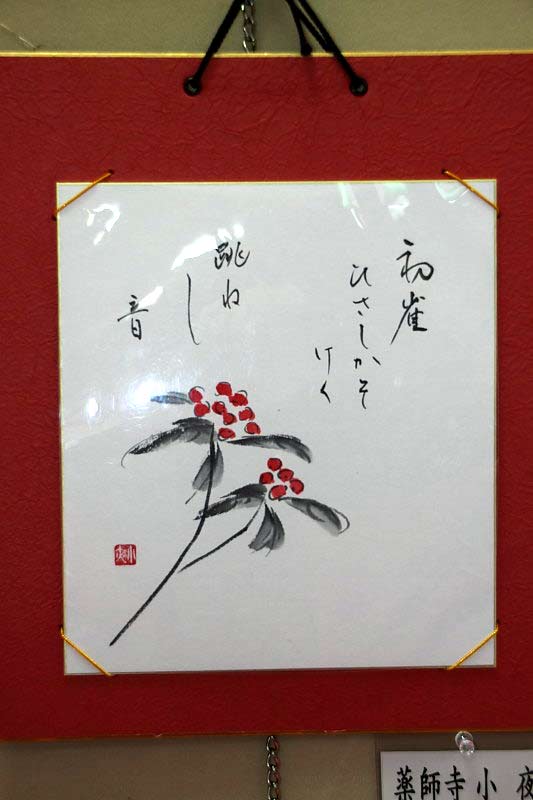 初雀
ひさしかそ
けく
跳ね
し
音
薬師寺小夜